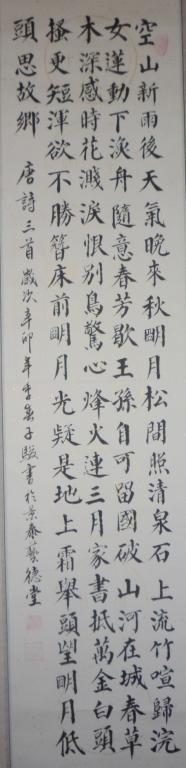 空山新雨後天氣晚來秋明月松間照清泉石上流竹喧歸浣
女蓮動下漁舟隨意春芳歇王孫自可留國破山河在城春草
木深感時花濺淚恨別鳥驚心烽火連三月家書抵萬金白頭
搔更短渾欲不勝簪床前明月光疑是地上霜舉頭望明月低
頭思故鄉
唐詩三首歲次辛卯年李子書於景泰藝德堂